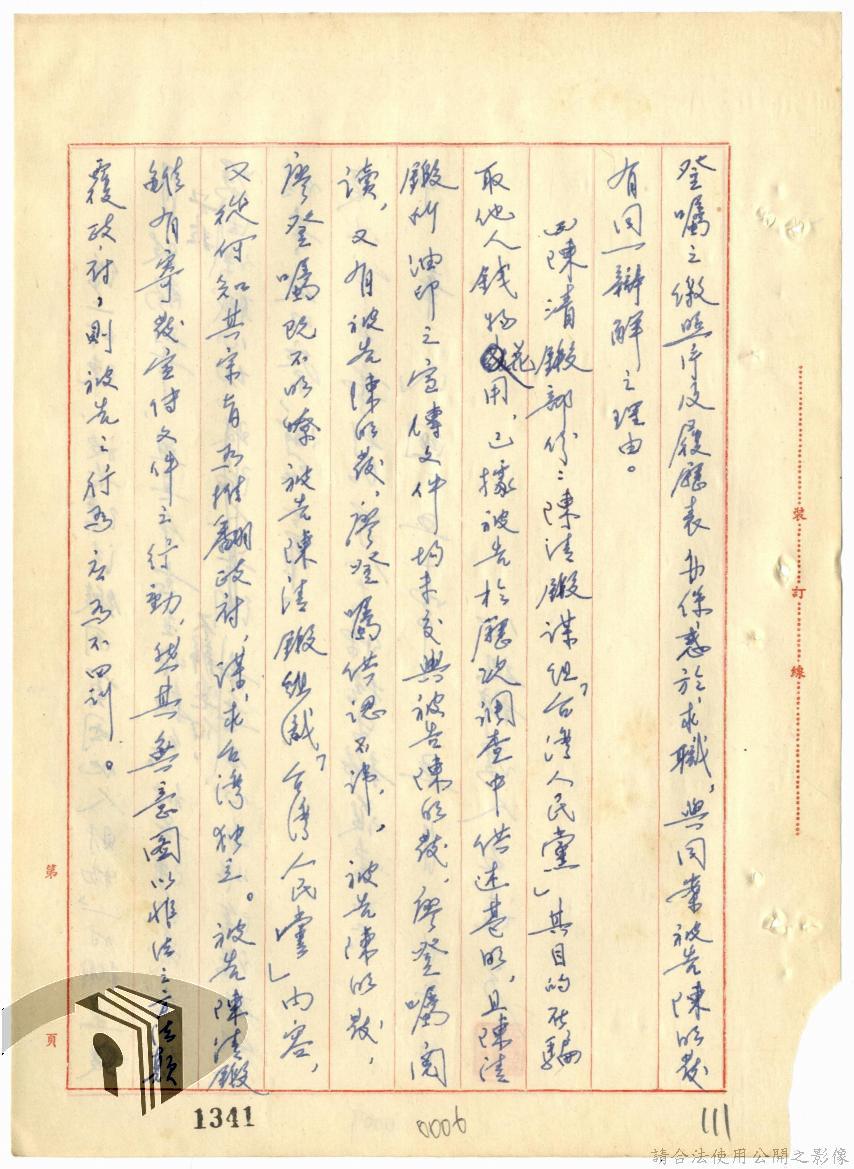 登嘱之繳照片及履歷表亦係惑於求職，與同案被告陳明發
有同一辯解之理由。
㈣陳清鍛部份：陳清鍛謀組「台灣人民黨」其目的在騙
取他人錢物花用，已據被告於歷次調查中供述甚明，且陳清
鍛所油印之宣傳文件均未交與被告陳明發，廖登嘱閱
讀，又有被告陳明發，廖登嘱供認不諱，被告陳明發，
廖登嘱既不明瞭被告陳清鍛組織「台灣人民黨」内容，
又從何知其宗旨為推翻政府，謀求台灣独立。被告陳清鍛
雖有寄發宣傳文件之行動，然其無意圖以非法之方法顛
覆政府，則被告之行為應為不罰。
裝訂線
第 頁
1341
0006
111
請合法使用公開之影像